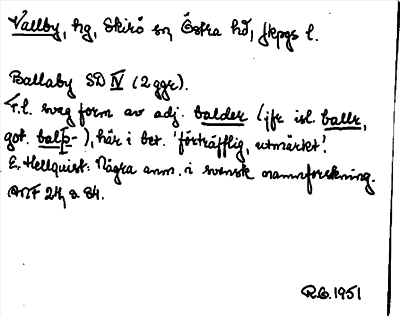 Vallby, hg, Skirö sn, Östra hd, Jkpgs l.
Ballaby SD IV (2 ggr).
T.l. svag form av adj. balder (jfr isl. ballr,
got. balþ-), här i bet. 'förträfflig, utmärkt'.
E. Hellquist: Några anm. i svensk namnforskning.
ANF 24, s. 84.
R.G. 1951